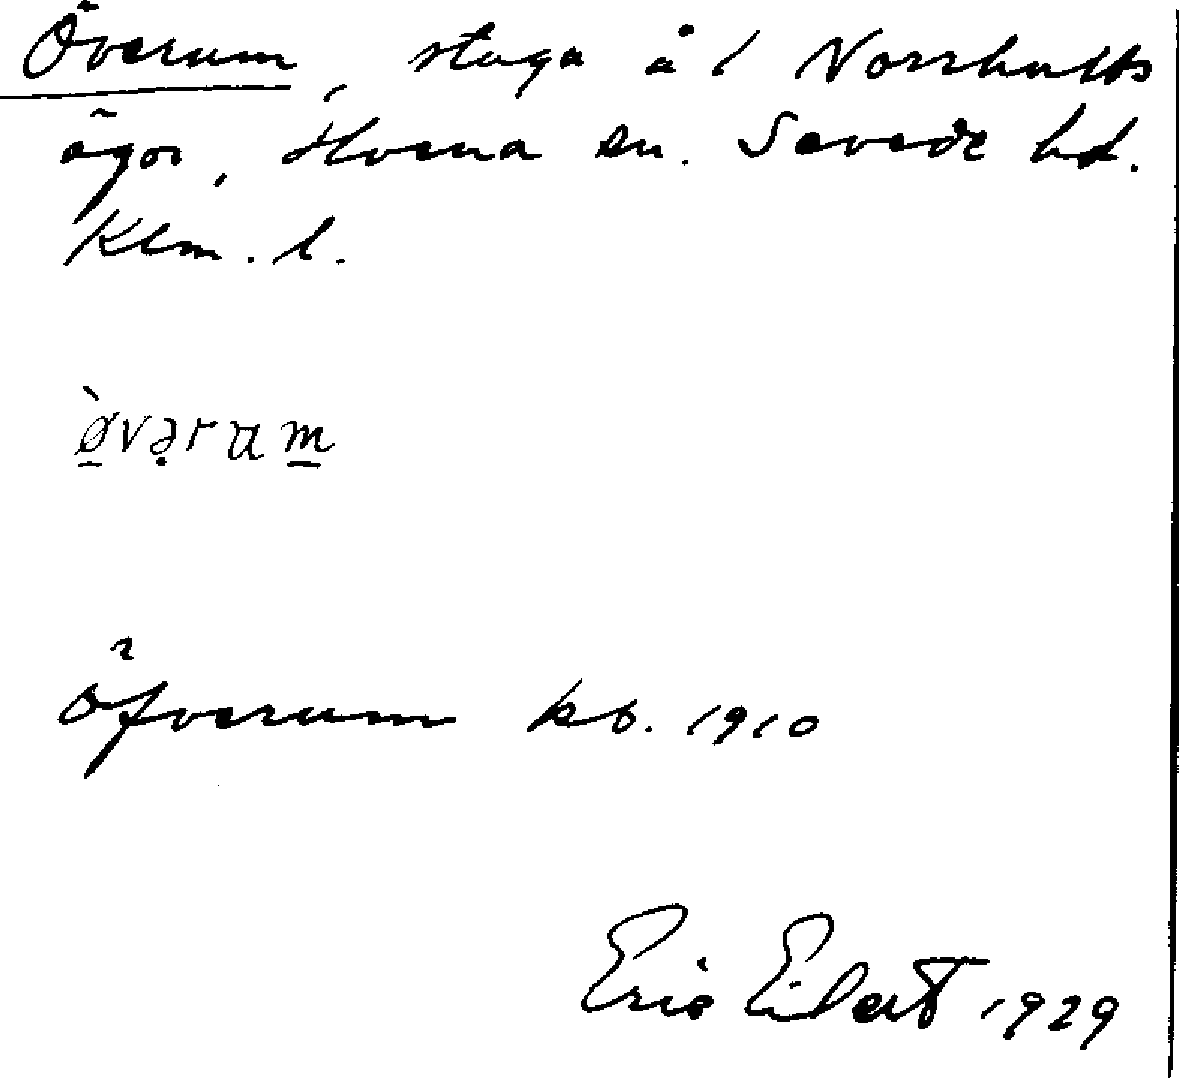 Överum, stuga å l Norrhults
ägor, Hvena sn. Sevede hd.
Klm. l.
ø̱̀və̣rum̲
Öfverum kb. 1910
Eric Eilert 1929